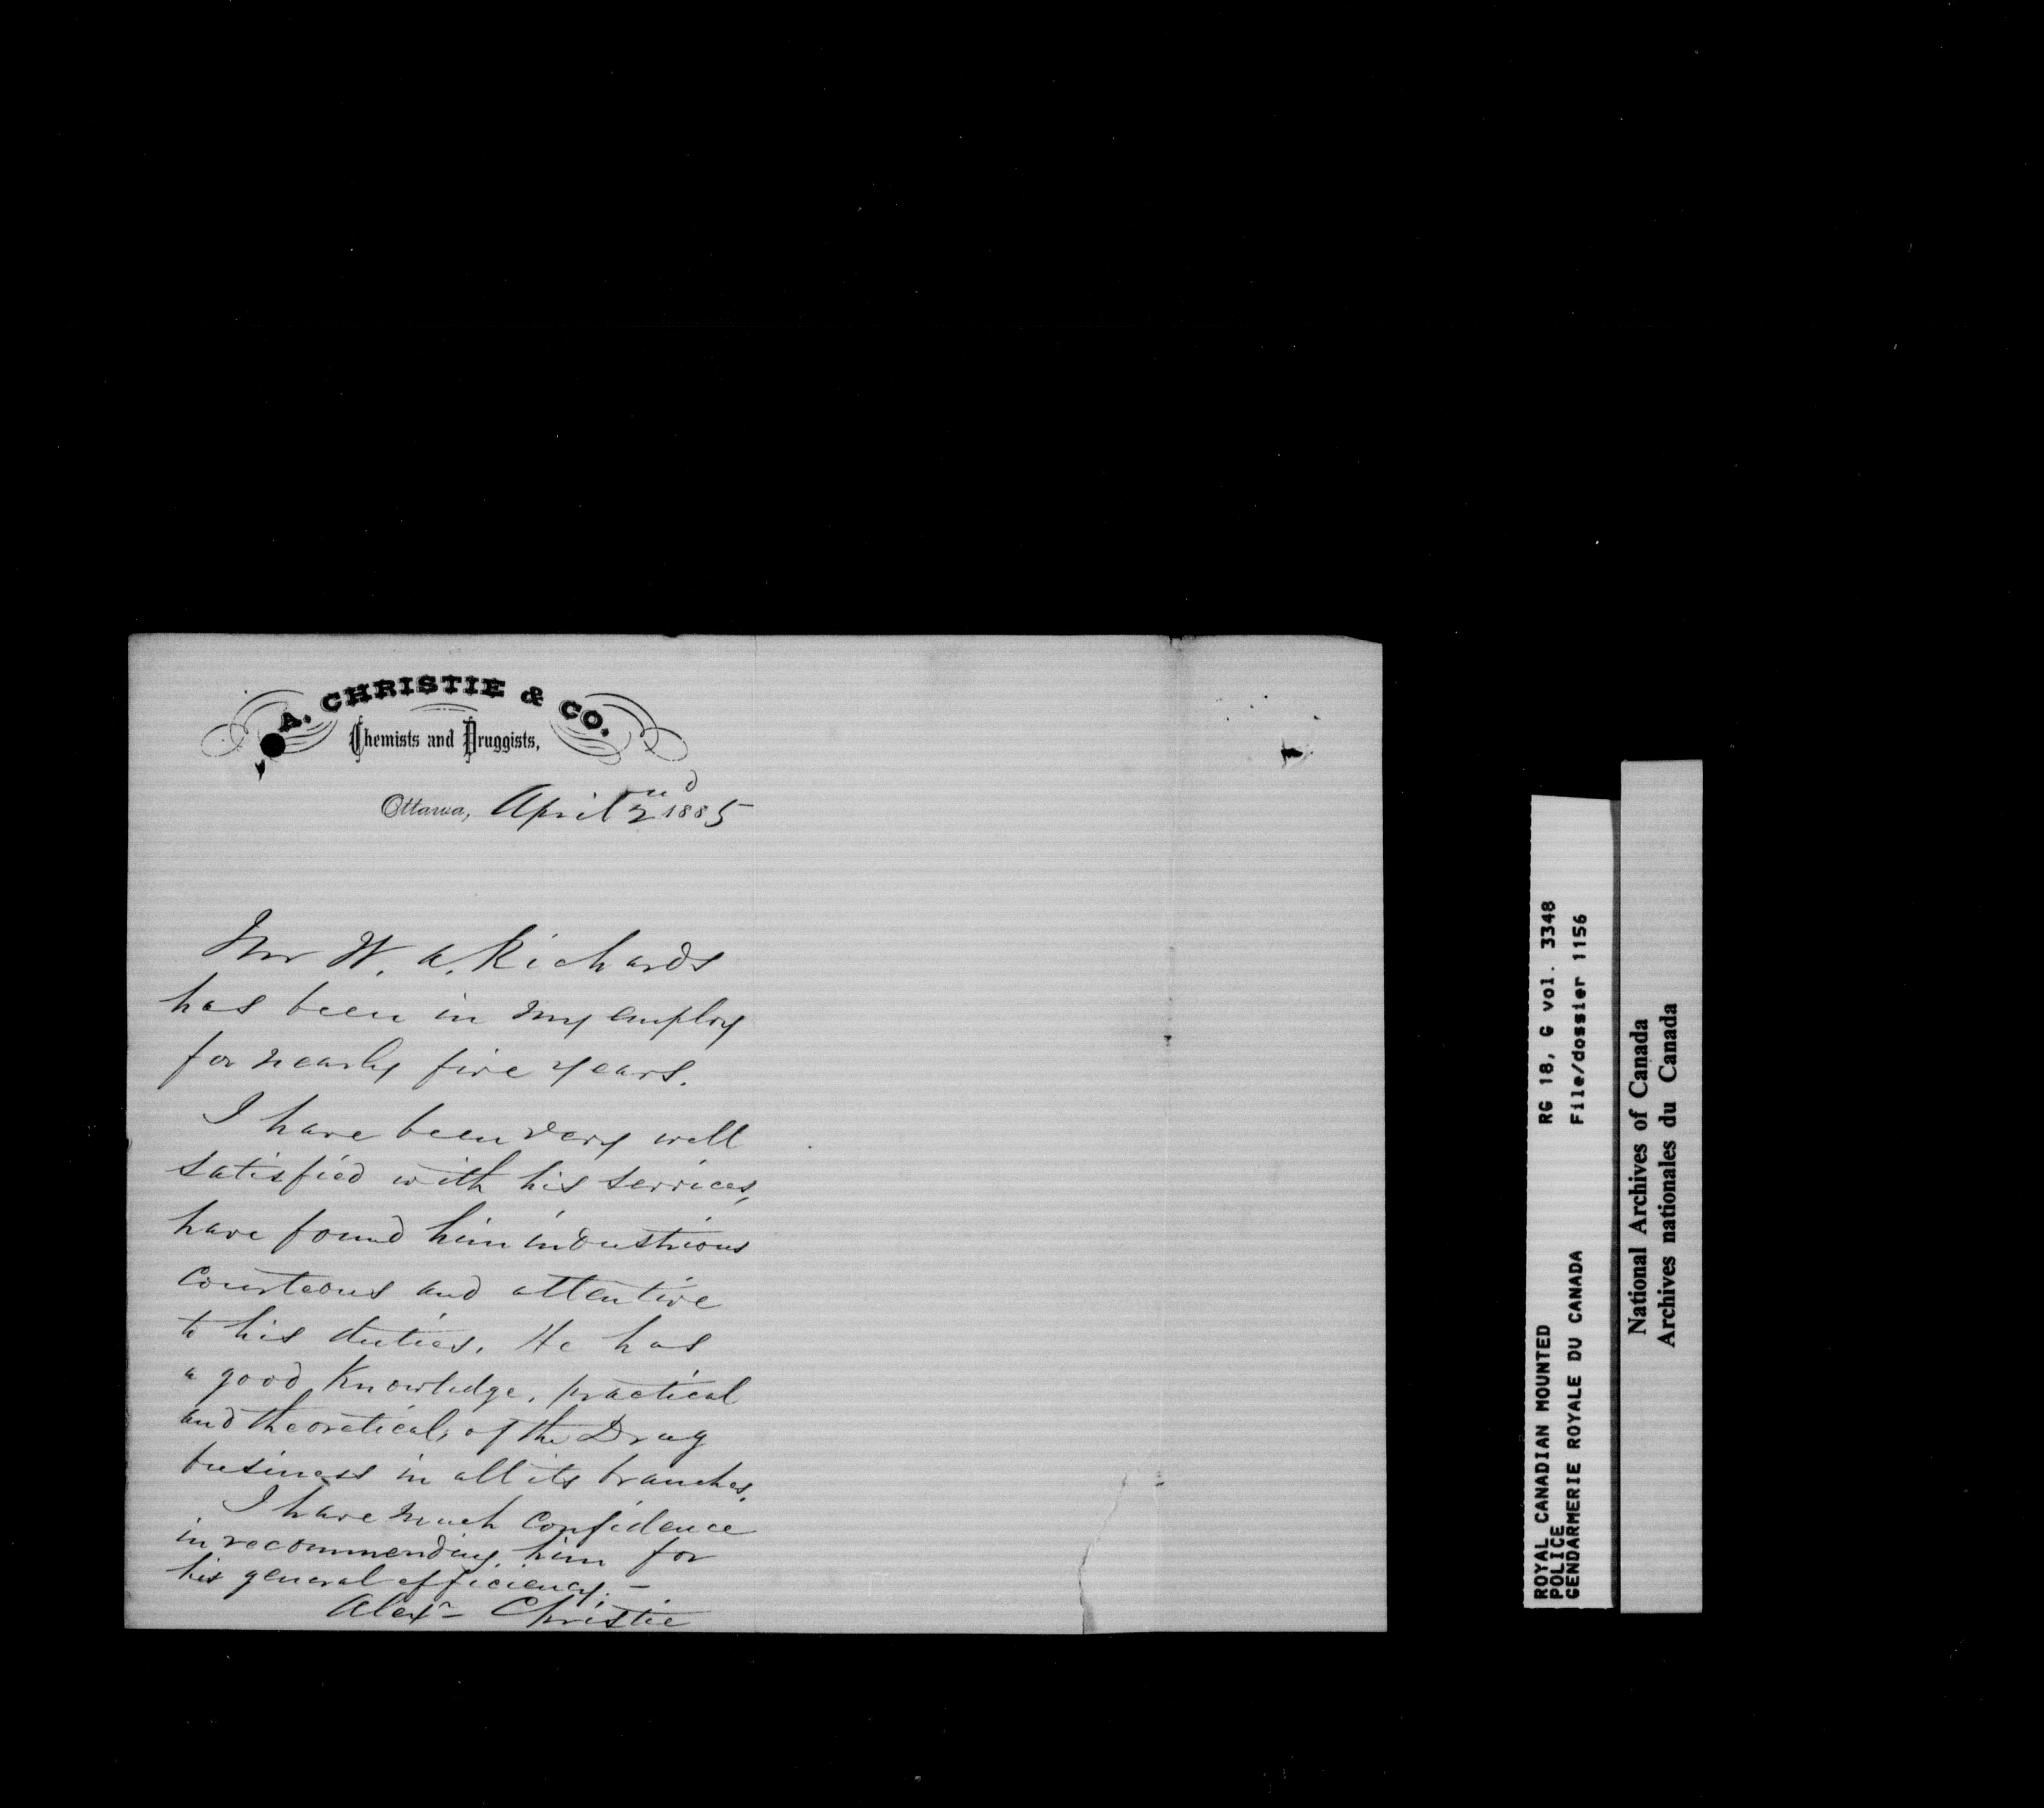 A. CHRISTIE & CO.
Chemists and Druggists,
Ottawa, April 2nd 1885
Mr W. A. Richards
has been in my employ
for nearly five years.
I have been very well
satisfied with his services,
have found him industrious
courteous and attentive
to his duties. He has
a good Knowledge, practical
and theoretical, of the Drug
business in all its branches.
I have much confidence
in recommending him for
his general efficiency. –
Alexr Christie
ROYAL CANADIAN MOUNTED
POLICE
GENDARMERIE ROYALE DU CANADA
RG 18, G vol. 3348
File/dossier 1156
National Archives of Canada
Archives nationales du Canada